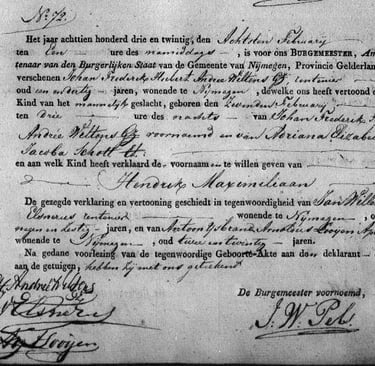 No. 72.
Het jaar achttien honderd drie en twintig, den Achtsten Februarij
ten Een ure des namiddags, is voor ons BURGEMEESTER, Am
tenaar van den Burgerlijken Staat van de Gemeente van Nijmegen, Provincie Gelderland
verschenen Johan Frederik Andrée Wiltens
oud en dertig jaren, wonende te Nijmegen, dewelke ons heeft vertoond e
Kind van het mannelijk geslacht, geboren den Zevenden Februarij
ten drie ure des nachts van Johan Frederik
Andrée Wiltens voornoemd en van Adriana Elizabe
Jacoba Schott
en aan welk Kind heeft verklaard de voornaam en te willen geven van
Hendrik Maximiliaan
De gezegde verklaring en vertooning geschied in tegenwoordigheid van Jan Wille
Elsnerus rentenier wonende te Nijmegen
en en dertig jaren, en van Antoon IJsbrand Looyen
wonende te Nijmegen, oud twee en twintig jaren.
Na gedane voorlezing van de tegenwoordige Geboorte-Akte aan den declarant
aan de getuigen, hebben zij met ons geteekend
Andrée Wiltens
De Burgemeester voornoemd,
Elsnerus
Looyen
J. W. Pels